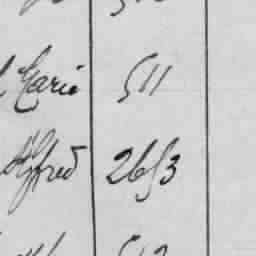 Marie 511
Alfred 2653